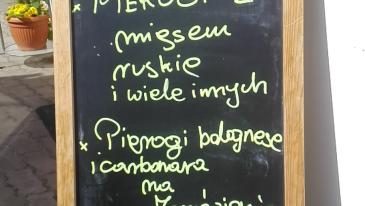 mięsem
ruskie
i wiele innych
x Pierogi bolognese
i carbonara
na